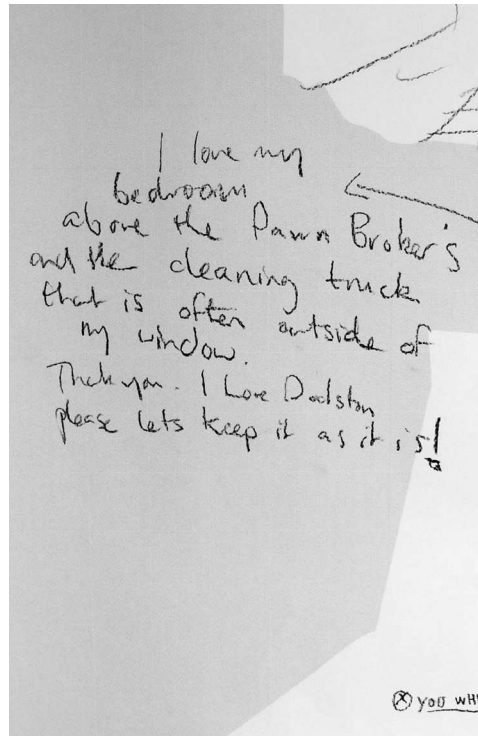 I love my
bedroom
above the Pawn Broker's
and the cleaning truck
that is often outside of
my window.
Thank you. I Love Dalston
please lets keep it as it is!
ⓧ you WH